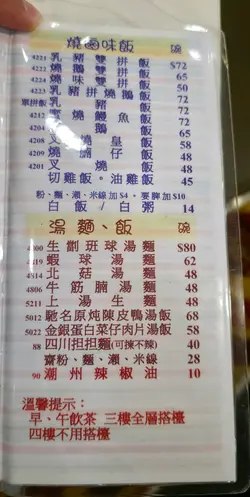 燒鹵味飯 碗
4221 乳豬雙拼飯 $72
4222 燒鵝雙拼飯 65
4224 燒味雙拼飯 50
4223 乳豬拼燒鵝飯 72
單拼飯 乳豬飯 72
鰻魚飯 72
4204 燒鵝飯 65
4208 叉燒皇飯 58
4209 燒腩仔飯 48
4201 叉燒飯 48
切雞飯。油雞飯 45
粉、麵、瀨、米線加$4。要脾加$10
白飯/白粥 14
湯麵、飯 碗
4800 生劏班球湯麵 $80
4819 蝦球湯麵 62
4814 北菇湯麵 48
4806 牛筋腩湯麵 48
5211 上湯生麵 48
5012 馳名原炖陳皮鴨湯飯 68
5022 金銀蛋白菜仔肉片湯飯 58
88 四川担担麵(可揀不辣) 40
齋粉、麵、瀨、米線 28
90 潮州辣椒油 10
溫馨提示:
早、午飲茶 三樓全層搭檯
四樓不用搭檯